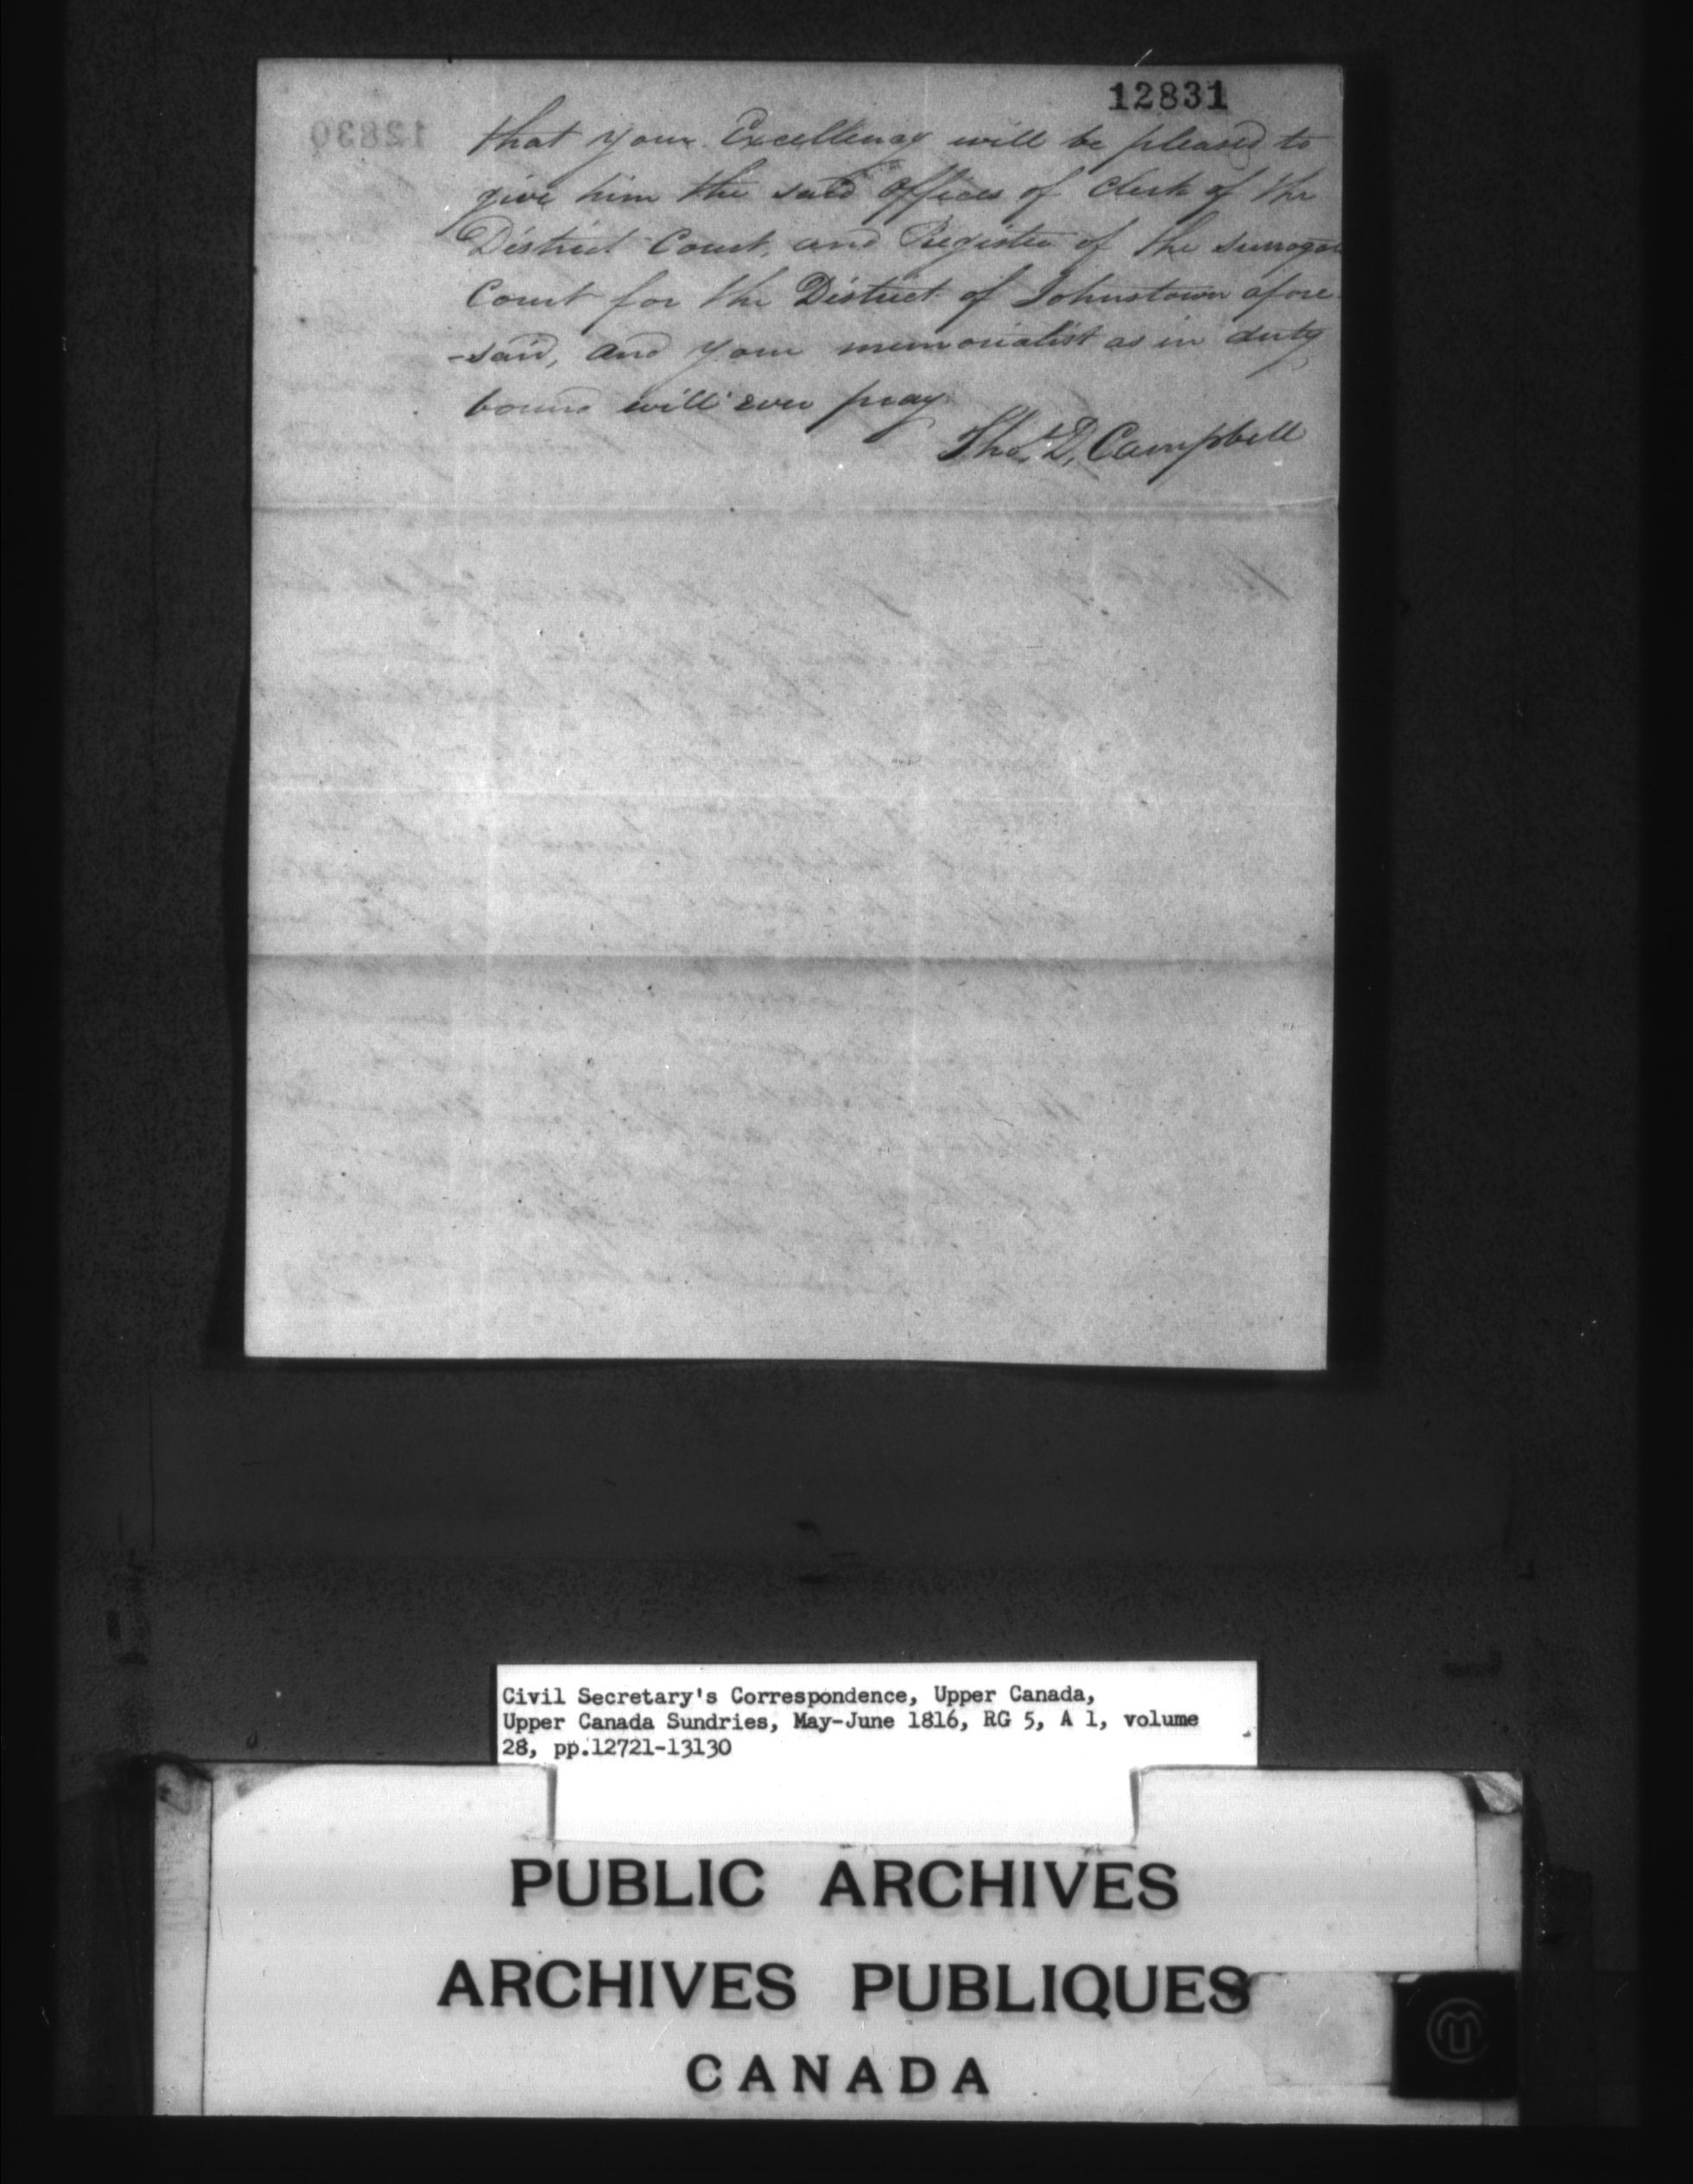 12831
that your Excellency will be pleased to
give him the said offices of Clerk of the
District Court, and Register of the Surrogate
Court for the District of Johnstown afore-
-said, and your memorialist as in duty
bound will ever pray
Thos. D. Campbell
Civil Secretary's Correspondence, Upper Canada,
Upper Canada Sundries, May-June 1816, RG 5, A 1, volume
28, pp.12721-13130
PUBLIC ARCHIVES
ARCHIVES PUBLIQUES
CANADA